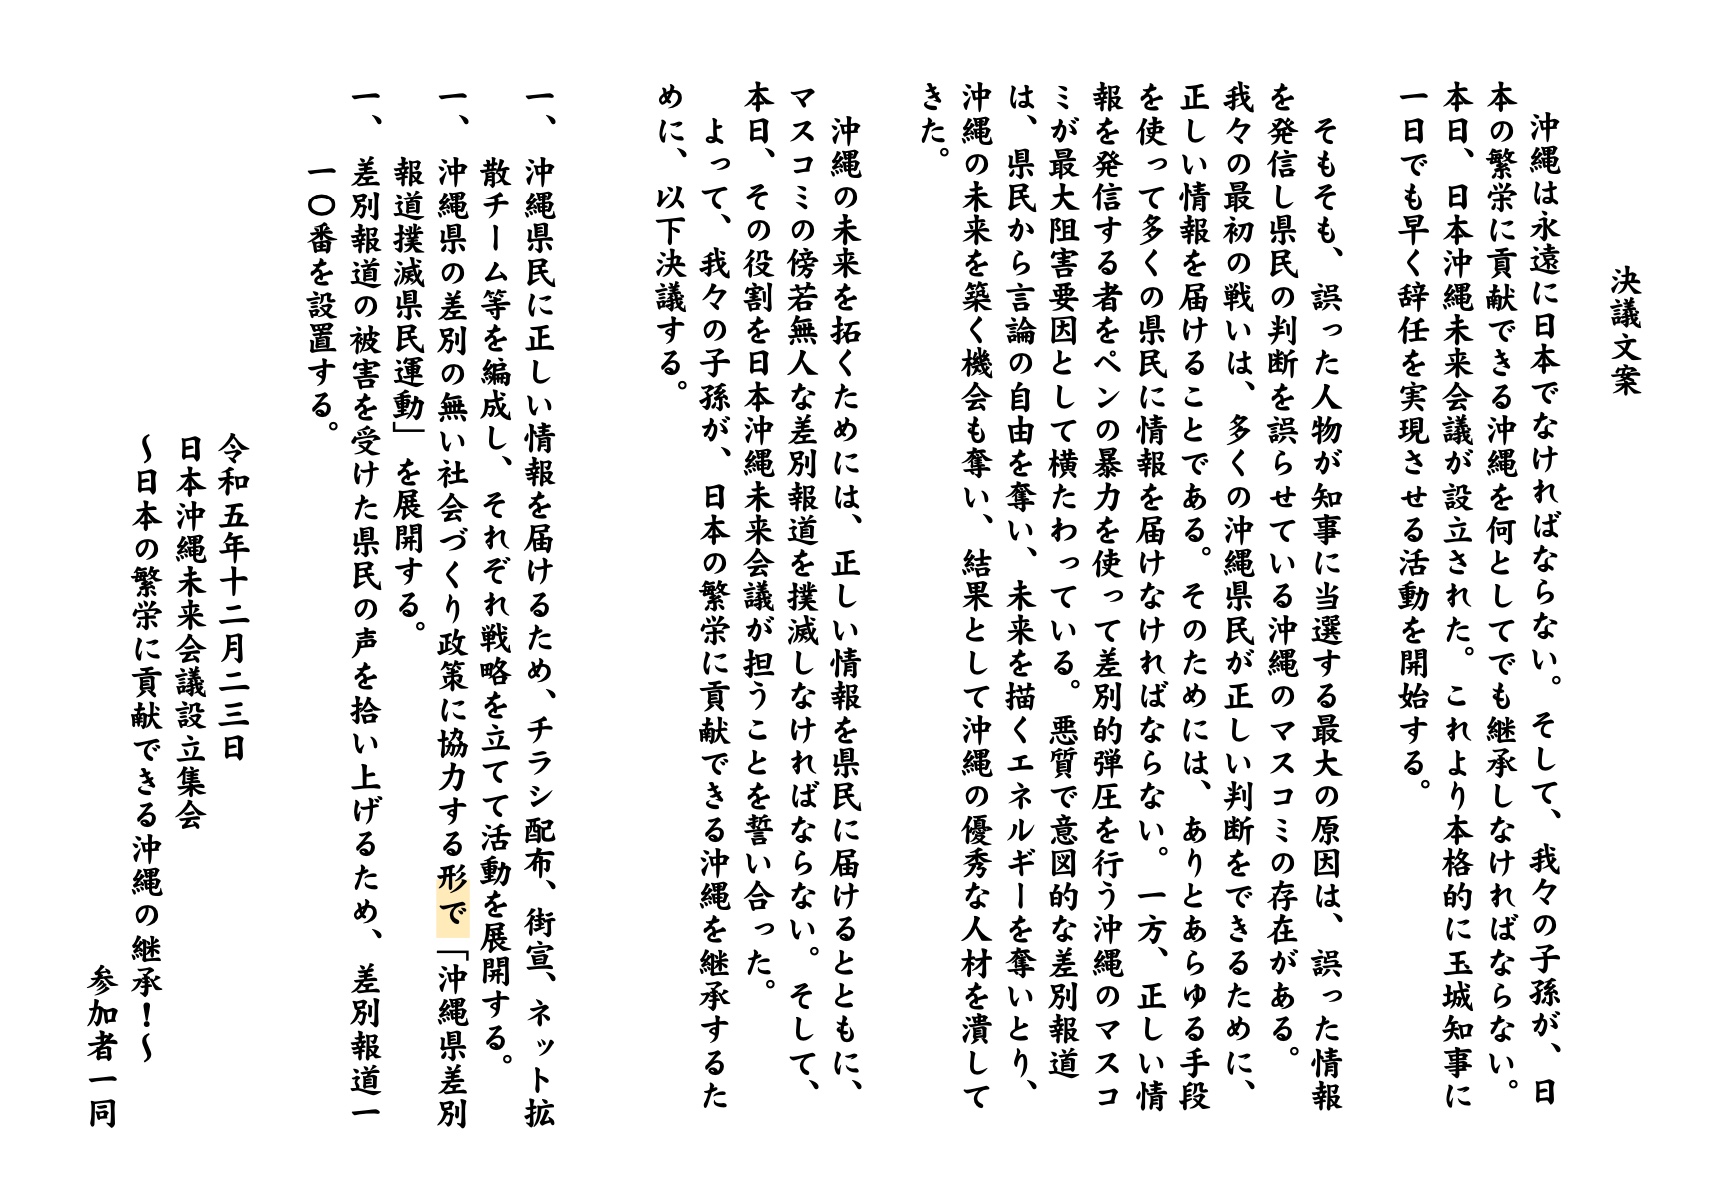 決議文案
沖縄は永遠に日本でなければならない。そして、我々の子孫が、日
本の繁栄に貢献できる沖縄を何としてでも継承しなければならない。
本日、日本沖縄未来会議が設立された。これより本格的に玉城知事に
一日でも早く辞任を実現させる活動を開始する。
そもそも、誤った人物が知事に当選する最大の原因は、誤った情報
を発信し県民の判断を誤らせている沖縄のマスコミの存在がある。
我々の最初の戦いは、多くの沖縄県民が正しい判断をできるために、
正しい情報を届けることである。そのためには、ありとあらゆる手段
を使って多くの県民に情報を届けなければならない。一方、正しい情
報を発信する者をペンの暴力を使って差別的弾圧を行う沖縄のマスコ
ミが最大阻害要因として横たわっている。悪質で意図的な差別報道
は、県民から言論の自由を奪い、未来を描くエネルギーを奪いとり、
沖縄の未来を築く機会も奪い、結果として沖縄の優秀な人材を潰して
きた。
沖縄の未来を拓くためには、正しい情報を県民に届けるとともに、
マスコミの傍若無人な差別報道を撲滅しなければならない。そして、
本日、その役割を日本沖縄未来会議が担うことを誓い合った。
よって、我々の子孫が、日本の繁栄に貢献できる沖縄を継承するた
めに、以下決議する。
一、沖縄県民に正しい情報を届けるため、チラシ配布、街宣、ネット拡
散チーム等を編成し、それぞれ戦略を立てて活動を展開する。
一、沖縄県の差別の無い社会づくり政策に協力する形で「沖縄県差別
報道撲滅県民運動」を展開する。
一、差別報道の被害を受けた県民の声を拾い上げるため、差別報道一
一〇番を設置する。
令和五年十二月二三日
日本沖縄未来会議設立集会
〜日本の繁栄に貢献できる沖縄の継承！〜
参加者一同